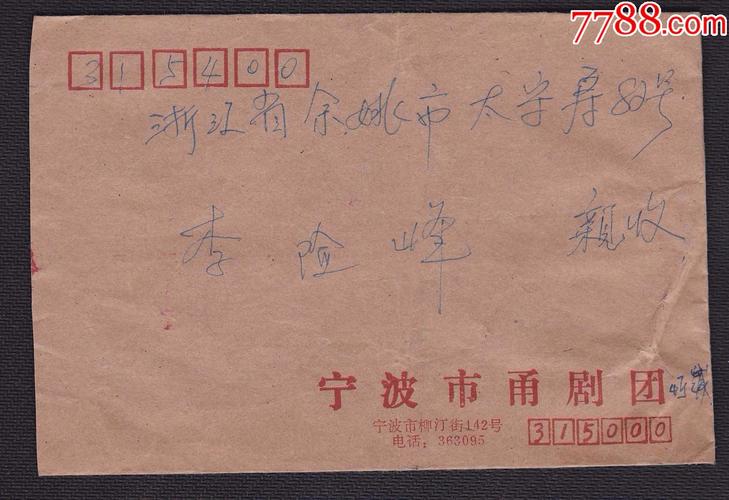 7788.com
315400
浙江省余姚市太平弄
李险峰 亲收
宁波市甬剧团
宁波市柳汀街142号
315000
电话：363095